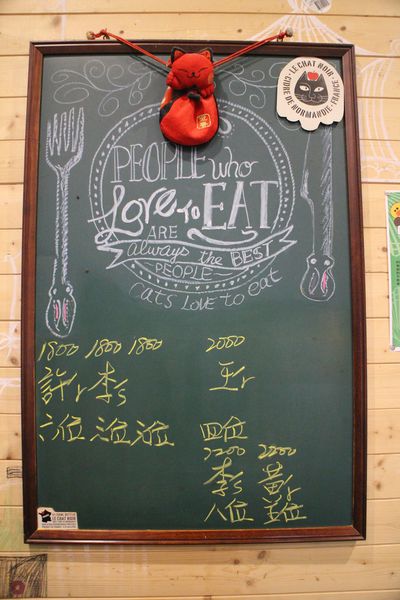 LE CHAT NOIR
CIDRE DE NORMANDIE-FRANCE
PEOPLE who
Love to EAT
ARE
always the BEST
PEOPLE
cats LOVE to eat
1800 1800 1800 2000
許r 李s 王r
六位 三位 四位
2200 2200
李s 黃r
八位 五位
LE CHAT NOIR